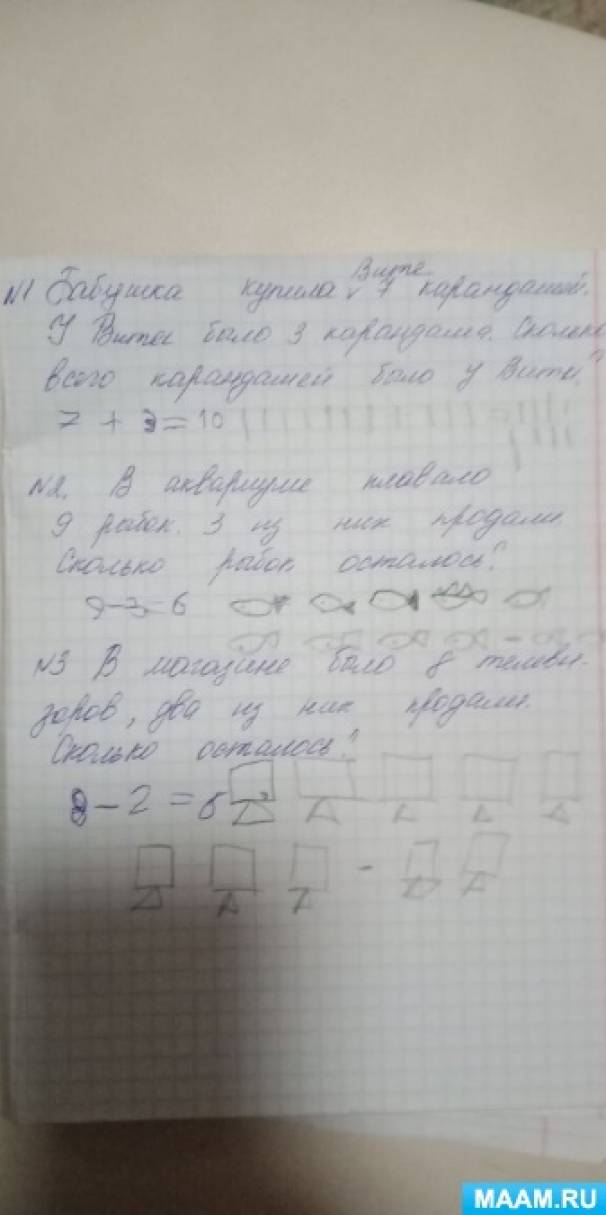 Вите
№1 Бабушка купила 7 карандашей.
У Вити было 3 карандаша. Сколько
всего карандашей было у Вити?
7 + 3 = 10
№2. В аквариуме плавало
9 рыбок. 3 из них продали.
Сколько рыбок осталось?
9 - 3 = 6
№3 В магазине было 8 телеви-
зоров, два из них продали.
Сколько осталось?
8 - 2 = 6
MAAM.RU